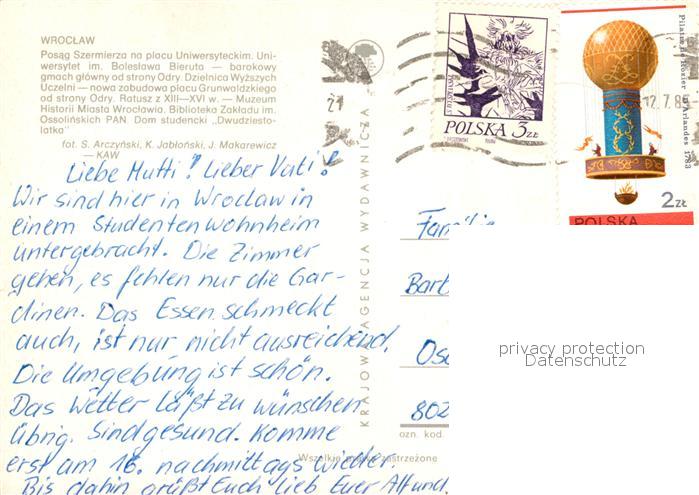 WROCŁAW
Posąg Szermierza na placu Uniwersyteckim. Uni-
wersytet im. Bolesława Bieruta — barokowy
gmach główny od strony Odry. Dzielnica Wyższych
Uczelni — nowa zabudowa placu Grunwaldzkiego
od strony Odry. Ratusz z XIII—XVI w. — Muzeum
Historii Miasta Wrocławia. Biblioteka Zakładu im.
Ossolińskich PAN. Dom studencki „Dwudziesto-
latka”
fot. S. Arczyński, K. Jabłoński, J. Makarewicz
— KAW
Liebe Mutti! Lieber Vati!
Wir sind hier in Wroclaw in
einem Studentenwohnheim
untergebracht. Die Zimmer
gehen, es fehlen nur die Gar-
dinen. Das Essen schmeckt
auch, ist nur nicht ausreichend.
Die Umgebung ist schön.
Das Wetter läßt zu wünschen
übrig. Sind gesund. Komme
erst am 16. nachmittags wieder.
Bis dahin grüßt Euch lieb Eure
KRAJOWA AGENCJA WYDAWNICZA
21
POLSKA 3 ZŁ
12.7.85
Pilatre de Rozier
Arlandes 1783
2 ZŁ
POLSKA
Familie
Bart
802
ozn. kod.
Wszelkie prawa zastrzeżone
privacy protection
Datenschutz